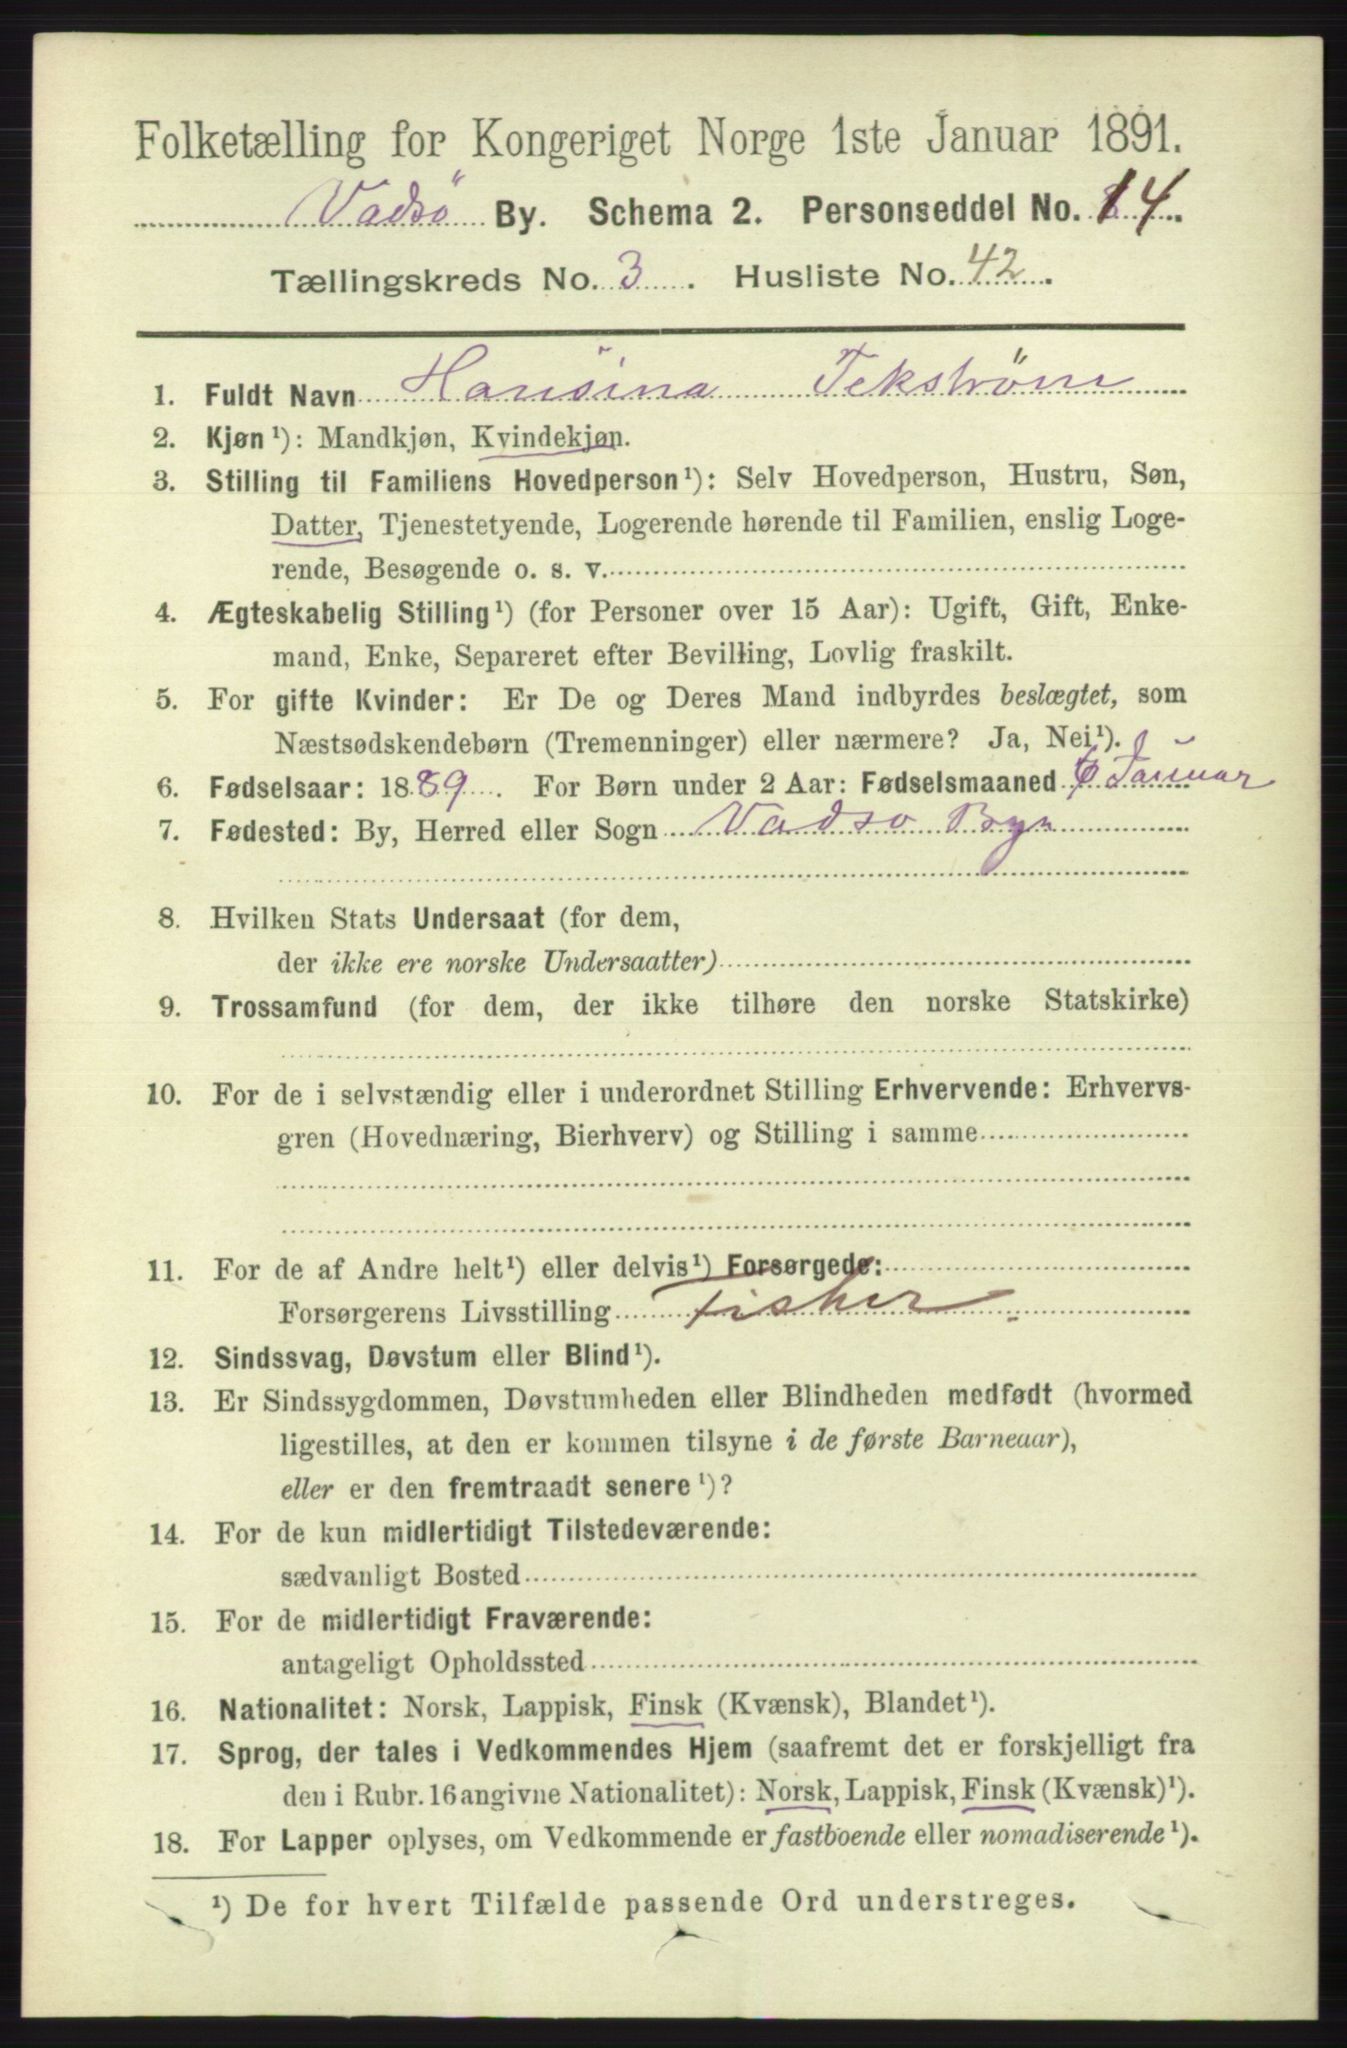 Folketælling for Kongeriget Norge 1ste Januar 1891.
Vadsö By. Schema 2. Personseddel No. 14.
Tællingskreds No. 3. Husliste No. 42.
1. Fuldt Navn Hansina Tekström
2. Kjøn¹): Mandkjøn, Kvindekjøn.
3. Stilling til Familiens Hovedperson¹): Selv Hovedperson, Hustru, Søn,
Datter, Tjenestetyende, Logerende hørende til Familien, enslig Loge-
rende, Besøgende o. s. v.
4. Ægteskabelig Stilling¹) (for Personer over 15 Aar): Ugift, Gift, Enke-
mand, Enke, Separeret efter Bevilling, Lovlig fraskilt.
5. For gifte Kvinder: Er De og Deres Mand indbyrdes beslægtet, som
Næstsødskendebørn (Tremenninger) eller nærmere? Ja, Nei¹).
6. Fødselsaar: 1889. For Børn under 2 Aar: Fødselsmaaned Januar
7. Fødested: By, Herred eller Sogn Vadso Byn
8. Hvilken Stats Undersaat (for dem,
der ikke ere norske Undersaatter)
9. Trossamfund (for dem, der ikke tilhøre den norske Statskirke)
10. For de i selvstændig eller i underordnet Stilling Erhvervende: Erhvervs-
gren (Hovednæring, Bierhverv) og Stilling i samme
11. For de af Andre helt¹) eller delvis¹) Forsørgede:
Forsørgerens Livsstilling Fisker
12. Sindssvag, Døvstum eller Blind¹).
13. Er Sindssygdommen, Døvstumheden eller Blindheden medfødt (hvormed
ligestilles, at den er kommen tilsyne i de første Barneaar),
eller er den fremtraadt senere¹)?
14. For de kun midlertidigt Tilstedeværende:
sædvanligt Bosted
15. For de midlertidigt Fraværende:
antageligt Opholdssted
16. Nationalitet: Norsk, Lappisk, Finsk (Kvænsk), Blandet¹).
17. Sprog, der tales i Vedkommendes Hjem (saafremt det er forskjelligt fra
den i Rubr. 16 angivne Nationalitet): Norsk, Lappisk, Finsk (Kvænsk)¹).
18. For Lapper oplyses, om Vedkommende er fastboende eller nomadiserende¹).
¹) De for hvert Tilfælde passende Ord understreges.